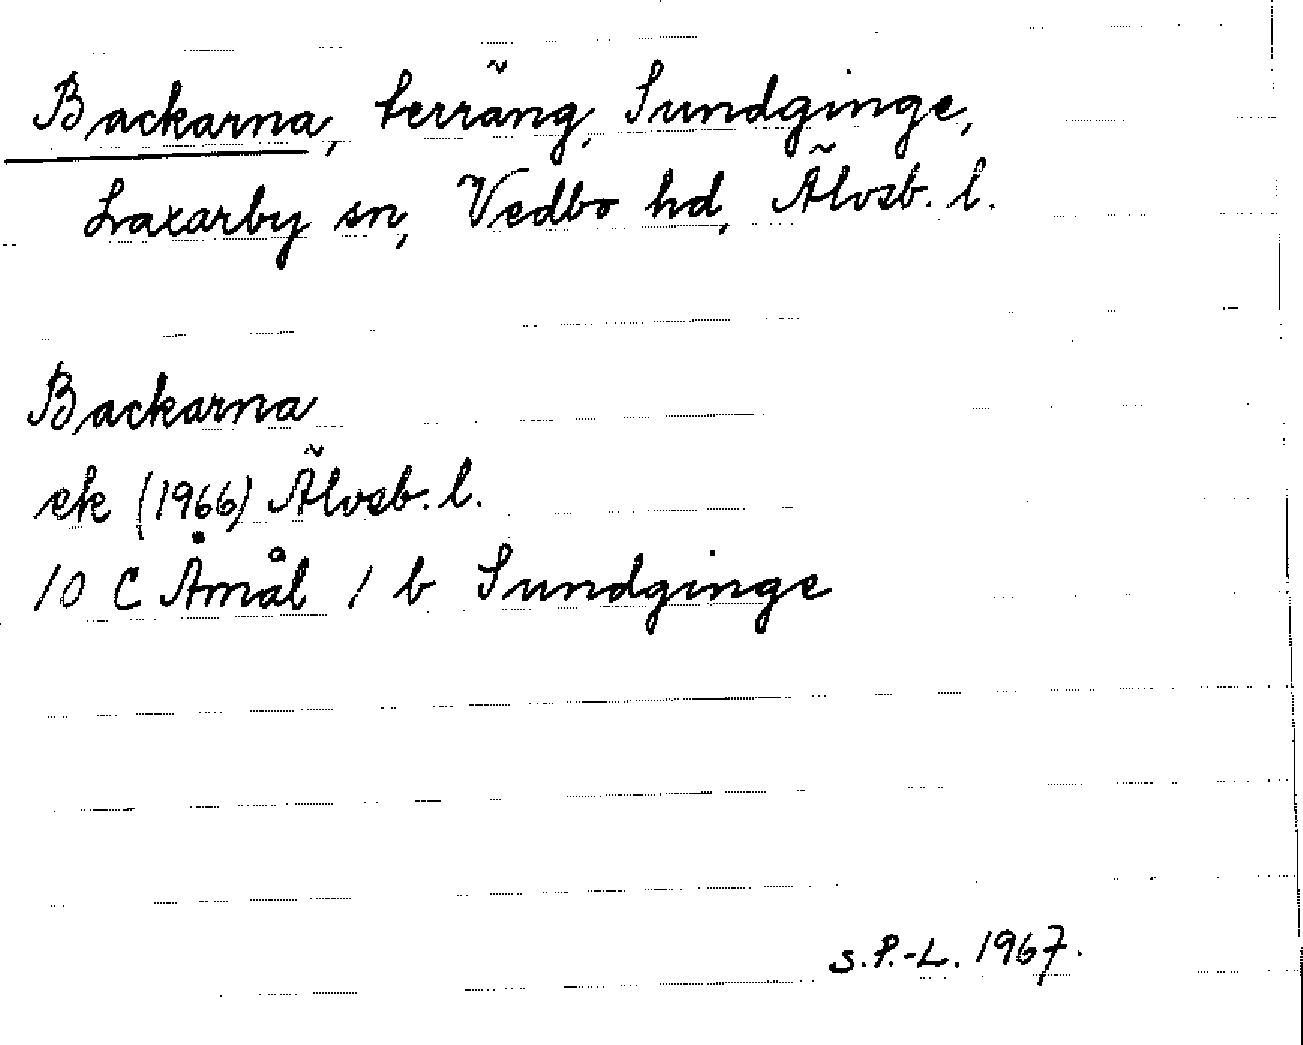 Backarna, terräng, Sundginge,
Laxarby sn, Vedbo hd, Älvsb. l.
Backarna
ek (1966) Älvsb. l.
10 C Åmål 1 b Sundginge
S.P.-L. 1967.